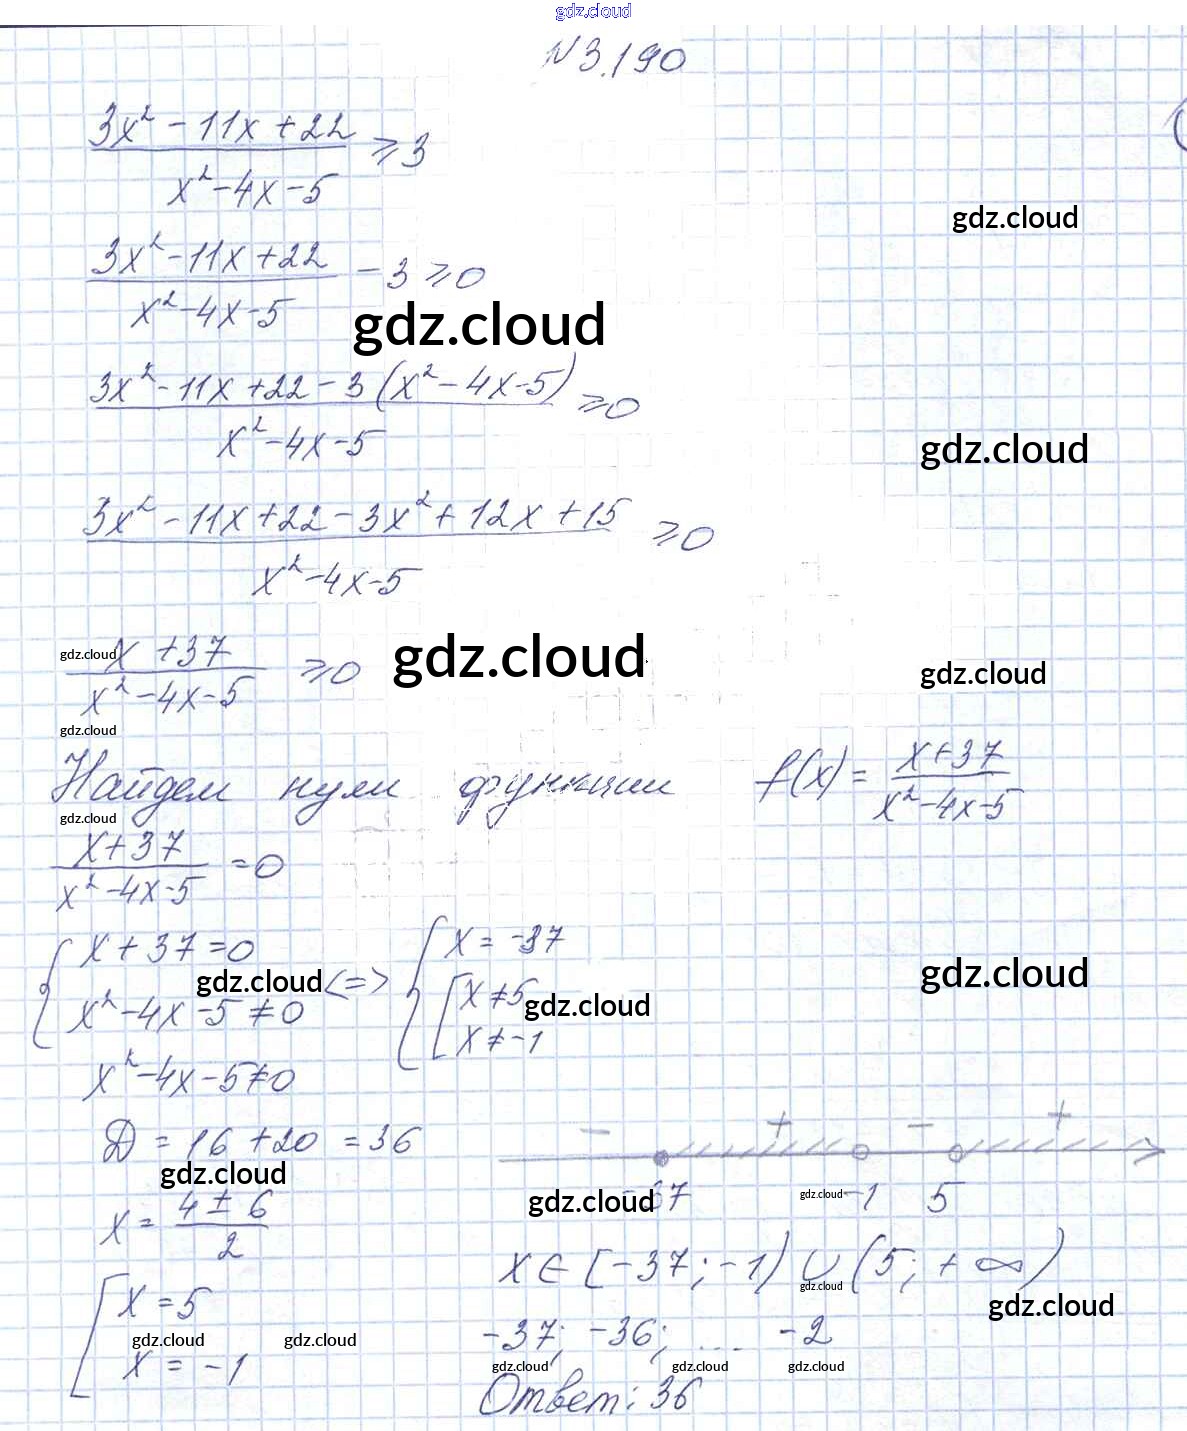 gdz.cloud
N 3.190
3x² - 11x + 22
⩾ 3
x² - 4x - 5
gdz.cloud
3x² - 11x + 22
- 3 ⩾ 0
x² - 4x - 5
gdz.cloud
3x² - 11x + 22 - 3(x² - 4x - 5)
⩾ 0
x² - 4x - 5
gdz.cloud
3x² - 11x + 22 - 3x² + 12x + 15
⩾ 0
x² - 4x - 5
gdz.cloud
x + 37
⩾ 0
gdz.cloud
gdz.cloud
x² - 4x - 5
gdz.cloud
Найдем нули функции f(x) = x + 37
x² - 4x - 5
gdz.cloud
x + 37
= 0
x² - 4x - 5
{ x + 37 = 0
x² - 4x - 5 ≠ 0
gdz.cloud
<=>
{ x = -37
[ x ≠ 5
x ≠ -1
gdz.cloud
gdz.cloud
x² - 4x - 5 ≠ 0
D = 16 + 20 = 36
gdz.cloud
- + - +
-37 -1 5
gdz.cloud
gdz.cloud
x = 4 ± 6
2
x ∈ [-37; -1) ∪ (5; +∞)
gdz.cloud
gdz.cloud
[ x = 5
x = -1
gdz.cloud
gdz.cloud
-37; -36; ... -2
gdz.cloud
gdz.cloud
gdz.cloud
Ответ: 36